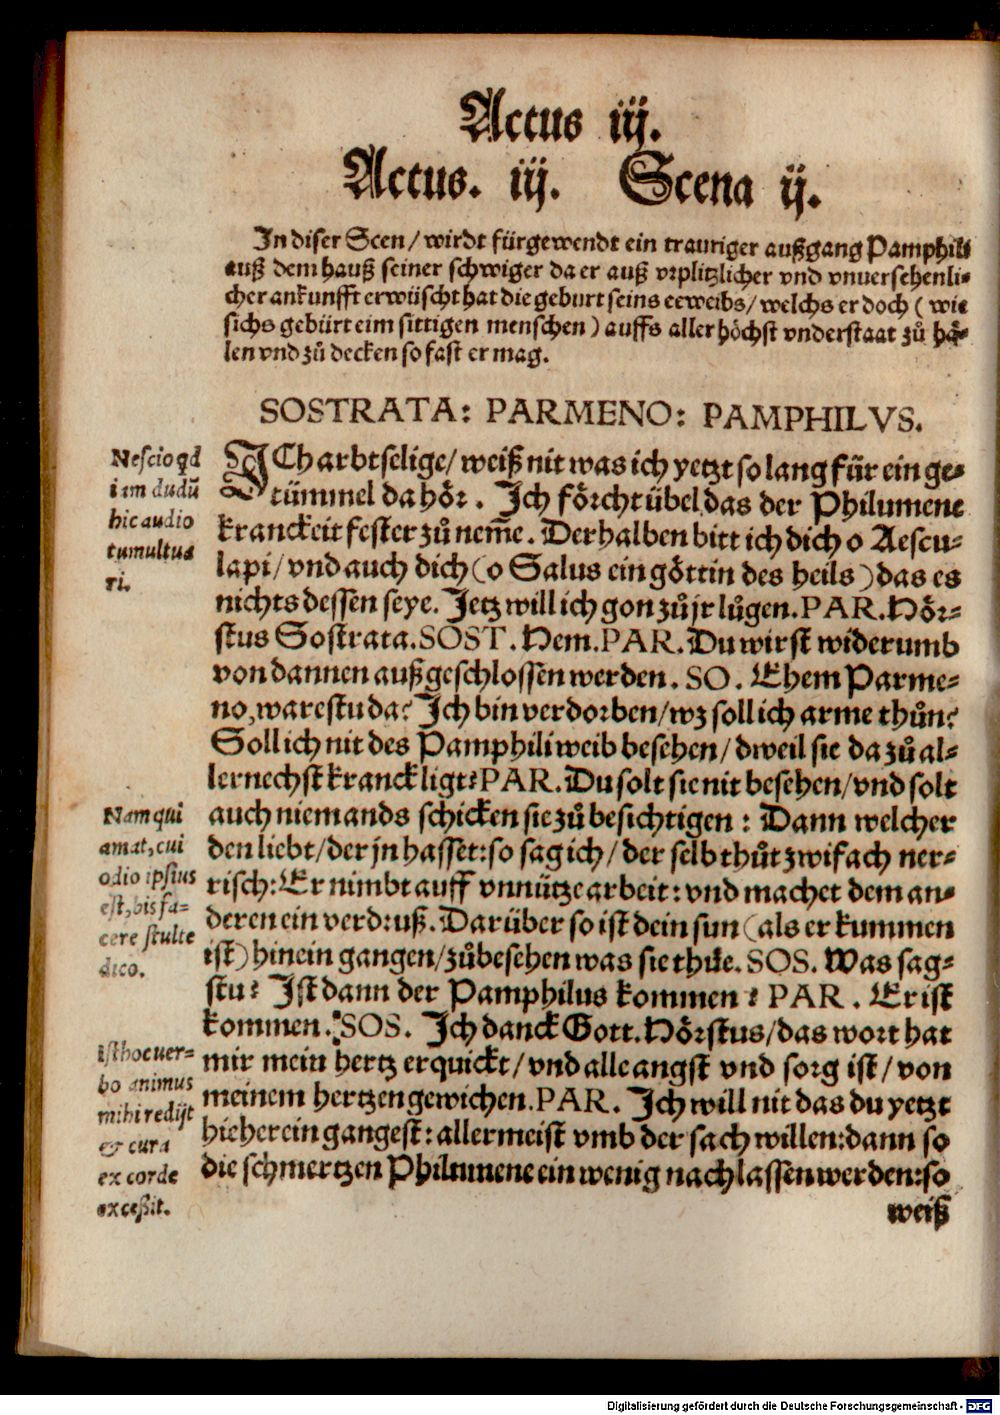 Actus iij.
Actus. iij. Scena ij.
In diser Scen/ wirdt fürgewendt ein trauriger außgang Pamphili
auß dem hauß seiner schwiger da er auß vrplitzlicher vnd vnuersehenli-
cher ankunfft erwüscht hat die geburt seins eeweibs/ welchs er doch ( wie
sichs gebürt eim sittigen menschen ) auffs aller höchst vnderstaat zů hä-
len vnd zů decken so fast er mag.
SOSTRATA: PARMENO: PAMPHILVS.
Nescio qd
iam dudũ
hic audio
tumultua
ri.
ICh arbtselige/ weiß nit was ich yetzt so lang für ein ge-
tümmel da hör. Ich förcht übel das der Philumene
kranckeit fester zů nem̃e. Derhalben bitt ich dich o Aescu-
lapi/ vnd auch dich (o Salus ein göttin des heils) das es
nichts dessen seye. Jetz will ich gon zů jr lůgen. PAR. Hör-
stus Sostrata. SOST. Hem. PAR. Du wirst widerumb
von dannen außgeschlossen werden. SO. Ehem Parme-
no, warestu da? Ich bin verdorben/ wz soll ich arme thůn?
Soll ich nit des Pamphili weib besehen/ dweil sie da zů al-
lernechst kranck ligt? PAR. Du solt sie nit besehen/ vnd solt
auch niemands schicken sie zů besichtigen : Dann welcher
den liebt/ der jn hasset: so sag ich/ der selb thůt zwifach ner-
risch: Er nimbt auff vnnütze arbeit: vnd machet dem an-
deren ein verdruß. Darüber so ist dein sun (als er kummen
ist) hinein gangen/ zů besehen was sie thůe. SOS. Was sag-
stu? Ist dann der Pamphilus kommen? PAR. Er ist
kommen. SOS. Ich danck Gott. Hörstus/ das wort hat
mir mein hertz erquickt/ vnd alle angst vnd sorg ist/ von
meinem hertzen gewichen. PAR. Ich will nit das du yetzt
hieher ein gangest: allermeist vmb der sach willen: dann so
die schmertzen Philumene ein wenig nachlassen werden: so
weiß
Nam qui
amat, cui
odio ipsius
est, bis fa-
cere stulte
dico.
isthoc uer-
bo animus
mihi redijt
& cura
ex corde
exceßit.
Digitalisierung gefördert durch die Deutsche Forschungsgemeinschaft - DFG